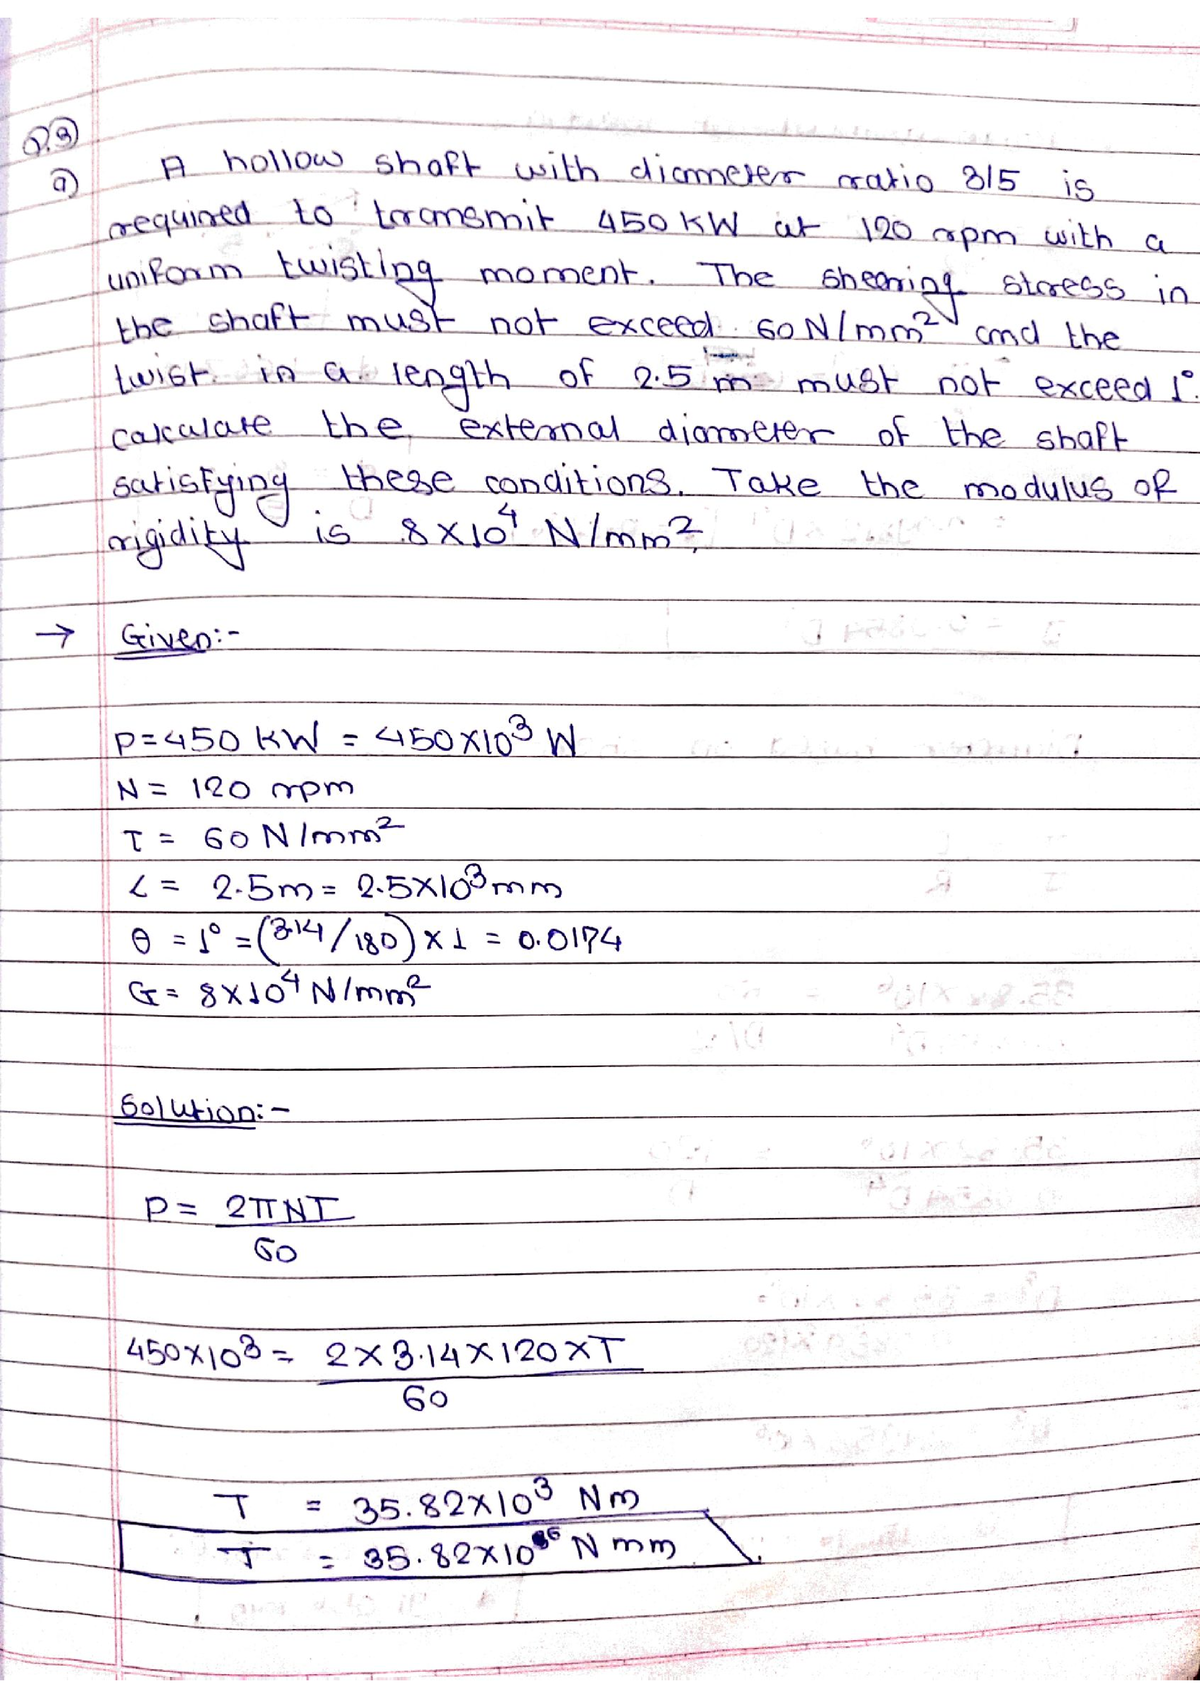 Q.3
a)
A hollow shaft with diameter ratio 3/5 is
required to transmit 450 KW at 120 rpm with a
uniform twisting moment. The shearing stress in
the shaft must not exceed 60 N/mm² and the
twist in a length of 2.5 m must not exceed 1°.
calculate the external diameter of the shaft
satisfying these conditions. Take the modulus of
rigidity is 8×10⁴ N/mm².
→ Given:-
P=450 KW = 450×10³ W
N = 120 rpm
τ = 60 N/mm²
L = 2.5m = 2.5×10³ mm
θ = 1° = (3.14/180) × 1 = 0.0174
G = 8×10⁴ N/mm²
Solution:-
P = 2πNT
60
450×10³ = 2×3.14×120×T
60
T = 35.82×10³ Nm
T = 35.82×10⁶ N mm